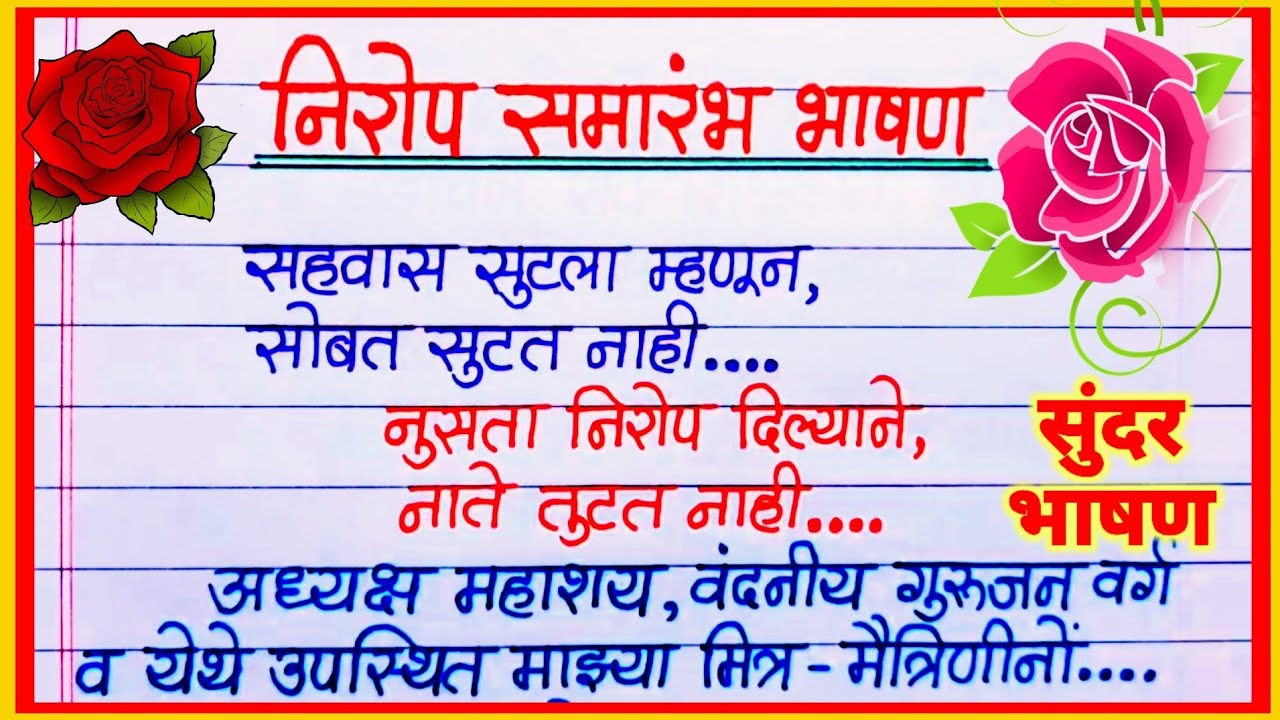 निरोप समारंभ भाषण
सहवास सुटला म्हणून,
सोबत सुटत नाही....
नुसता निरोप दिल्याने,
नाते तुटत नाही....
सुंदर
भाषण
अध्यक्ष महाशय, वंदनीय गुरूजन वर्ग
व येथे उपस्थित माझ्या मित्र-मैत्रिणींनों....